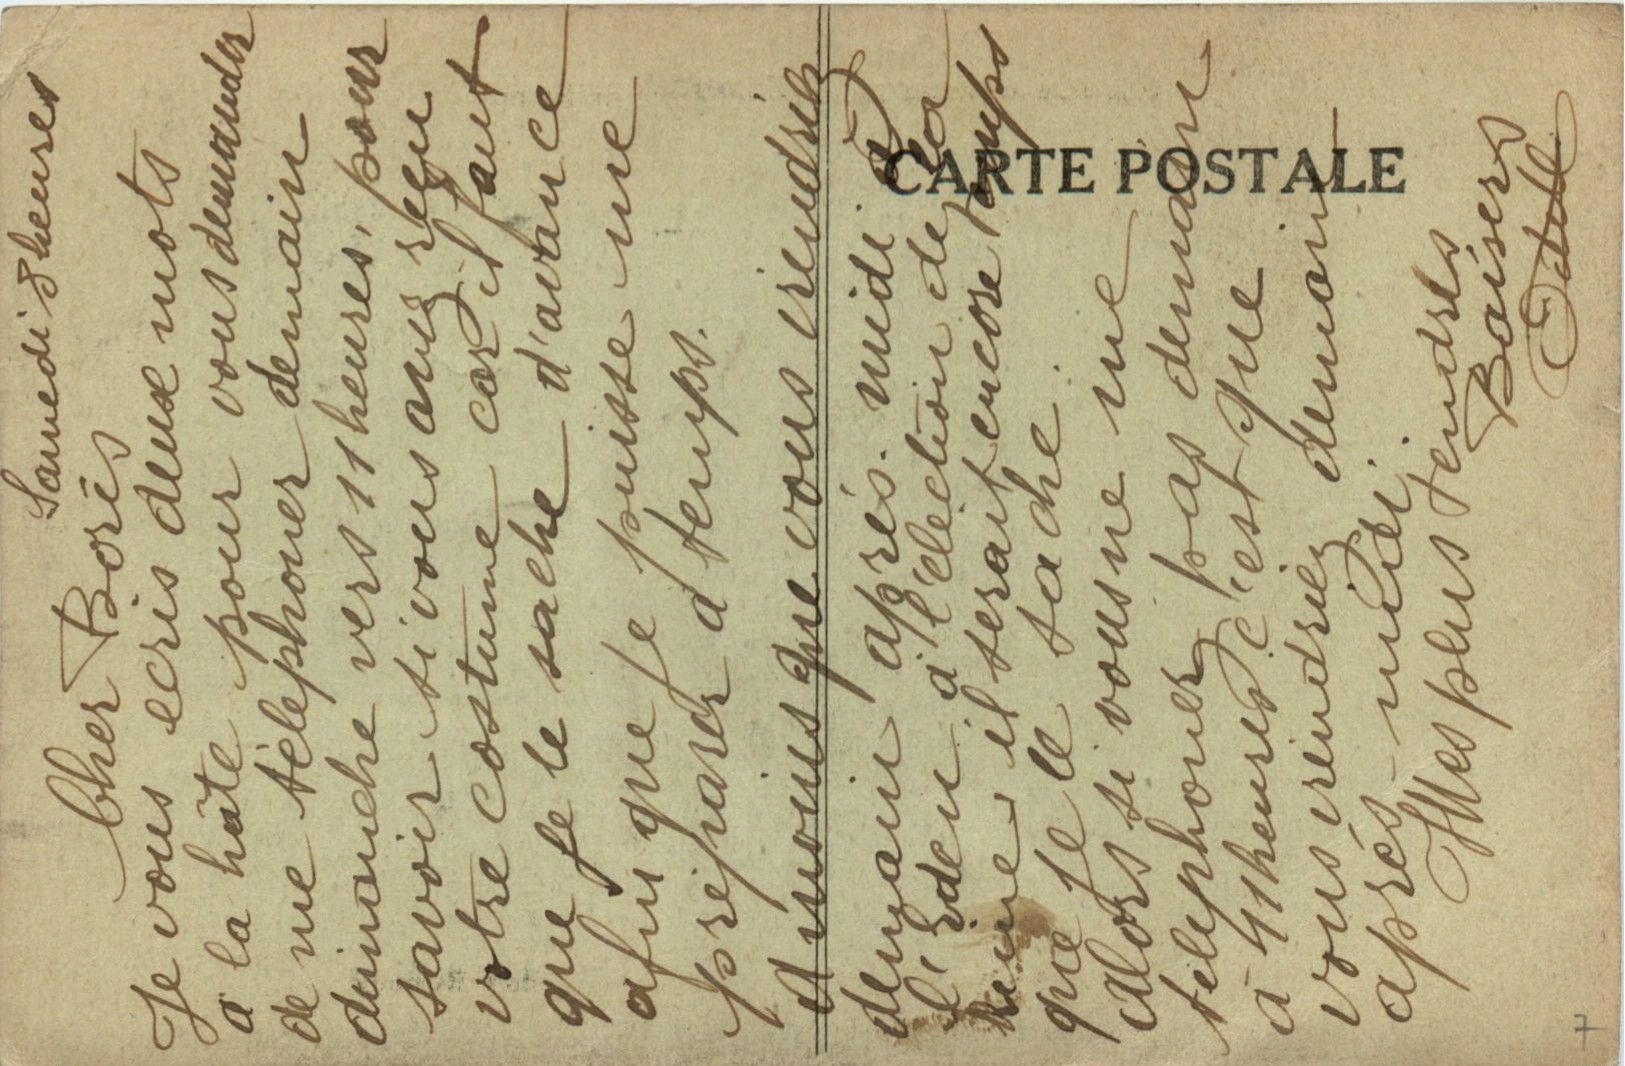 CARTE POSTALE
Samedi 8 heures
Cher Boris
Je vous ecris deux mots
a la hâte pour vous demander
de me téléphoner demain
dimanche vers 11 heures, pour
savoir si vous avez reçu
votre costume car il faut
que je le sache d'avance
afin que je puisse me
préparer a temps.
A moins que vous viendriez
demain après-midi à
l'Eden à l'élection de la
Reine il serait encore temps
que je le sache.
Alors si vous ne me
téléphonez pas demain
à 11 heures c'est que
vous viendriez demain
après-midi.
Mes plus tendres
Baisers
7